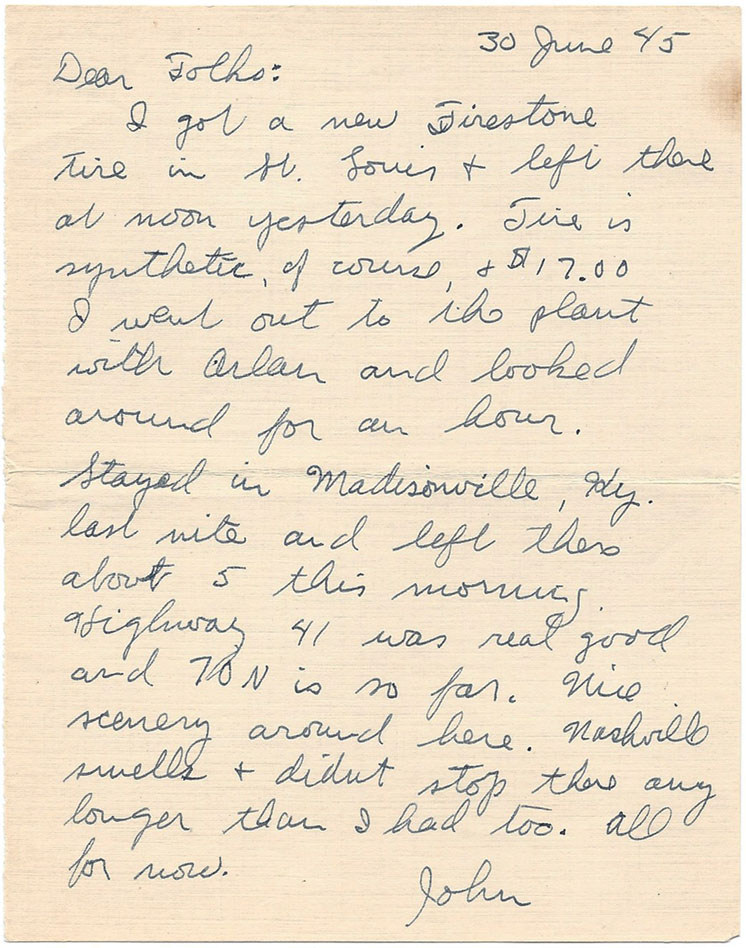 30 June 45
Dear Folks:
I got a new Firestone
tire in St. Louis + left there
at noon yesterday. Tire is
synthetic, of course, + $17.00
I went out to the plant
with Arlan and looked
around for an hour.
Stayed in Madisonville, Ky.
last nite and left there
about 5 this morning.
Highway 41 was real good
and 70N is so far. Nice
scenery around here. Nashville
smells + didnt stop there any
longer than I had too. All
for now.
John